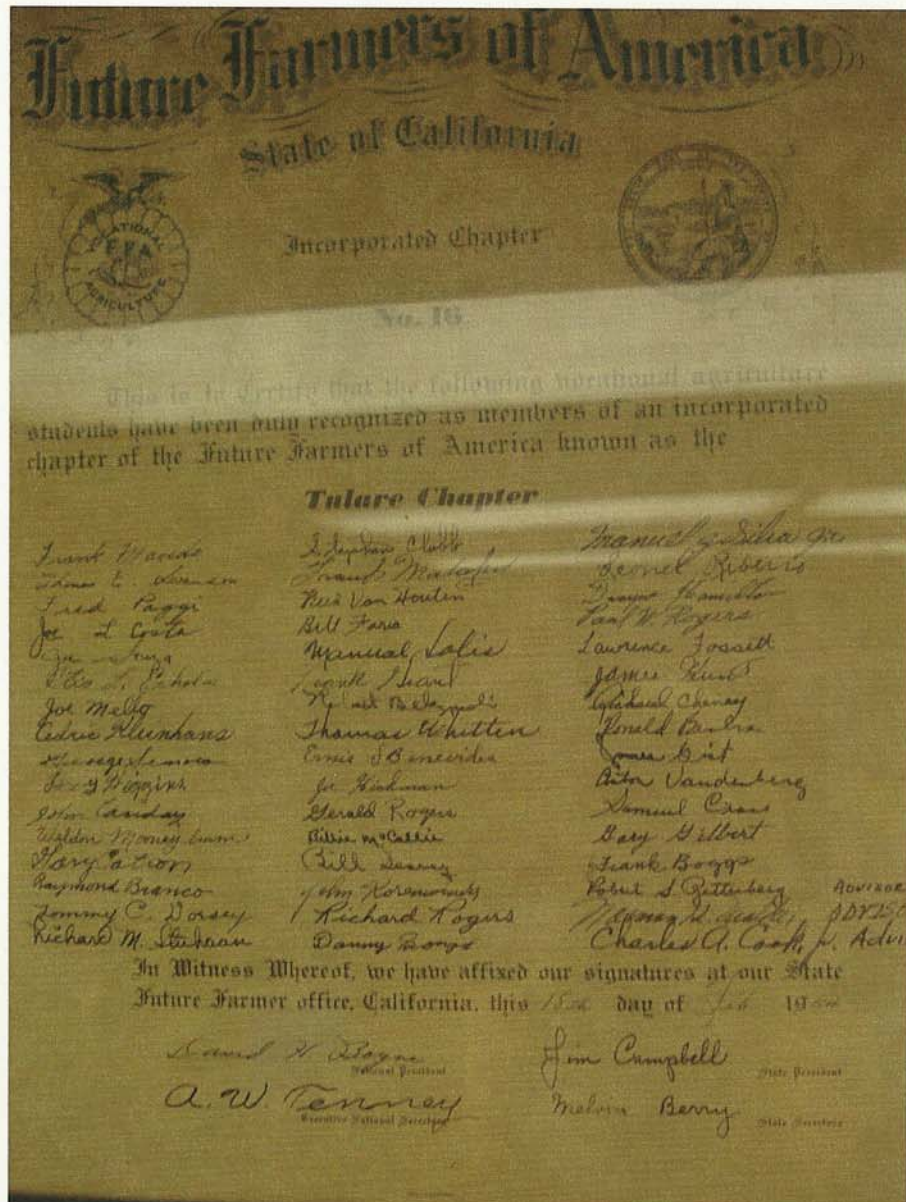 Future Farmers of America
State of California
VOCATIONAL
F F A
AGRICULTURE
Incorporated Chapter
No. 16
This is to Certify that the following vocational agriculture
students have been duly recognized as members of an incorporated
chapter of the Future Farmers of America known as the
Tulare Chapter
Frank
Thomas E. Swenson
Fred Paggi
Joe L Costa
Joe Souza
Echols
Joe Mello
Cedric Kleinhans
George
Higgins
John Canday
Weldon Mooneyham
Gary
Raymond Bianco
Tommy C. Dorsey
Richard M. Stuhaan
Stephen Clark
Frank
Van Houten
Bill Faria
Manual Solis
Frank
Robert
Thomas Whitten
Ernie J Benevides
Joe Hickman
Gerald Rogers
Billie McCallie
Bill
John
Richard Rogers
Danny
Manuel J Silva Jr.
Leonel Ribeiro
Dwayne Hamilton
Paul W. Rogers
Lawrence Fossett
James Hunt
Michael Cheney
Ronald
James Gist
Vandenberg
Samuel
Gary Gilbert
Frank Boggs
Robert S. ADVISOR
ADVISO
Charles A. Cook, Jr. Advi
In Witness Whereof, we have affixed our signatures at our State
Future Farmer office, California, this 18th day of Feb 19
David H. Boyne
National President
Jim Campbell
State President
A. W. Tenney
Executive National Secretary
Melvin Berry
State Secretary